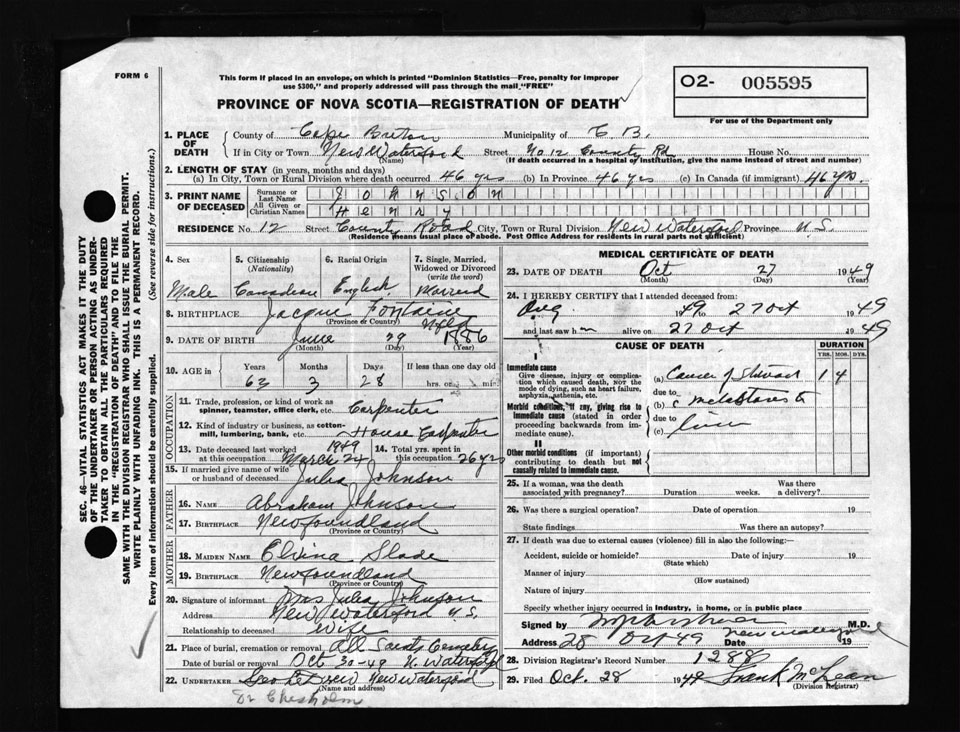 FORM 6
This form if placed in an envelope, on which is printed "Dominion Statistics—Free, penalty for improper
use $300," and properly addressed will pass through the mail "FREE"
PROVINCE OF NOVA SCOTIA—REGISTRATION OF DEATH
O2- 005595
For use of the Department only
SEC. 46—VITAL STATISTICS ACT MAKES IT THE DUTY
OF THE UNDERTAKER OR PERSON ACTING AS UNDER-
TAKER TO OBTAIN ALL THE PARTICULARS REQUIRED
IN THE "REGISTRATION OF DEATH" AND TO FILE THE
SAME WITH THE DIVISION REGISTRAR WHO SHALL ISSUE THE BURIAL PERMIT.
WRITE PLAINLY WITH UNFADING INK. THIS IS A PERMANENT RECORD.
Every item of Information should be carefully supplied. (See reverse side for instructions.)
1. PLACE OF DEATH
County of Cape Breton Municipality of C B.
If in City or Town New Waterford Street No 12 County Rd House No.
(Name) (If death occurred in a hospital or institution, give the name instead of street and number)
2. LENGTH OF STAY (in years, months and days)
(a) In City, Town or Rural Division where death occurred 46 yrs (b) In Province 46 yrs (c) In Canada (if immigrant) 46 yrs.
3. PRINT NAME OF DECEASED
Surname or Last Name JOHNSON
All Given or Christian Names HENRY
RESIDENCE No. 12 Street County Road City, Town or Rural Division New Waterford Province N.S.
(Residence means usual place of abode. Post Office Address for residents in rural parts not sufficient)
4. Sex Male
5. Citizenship (Nationality) Canadian
6. Racial Origin English
7. Single, Married, Widowed or Divorced (write the word) Married
8. BIRTHPLACE Jacque Fontaine Nfld
(Province or Country)
9. DATE OF BIRTH June 29 1886
(Month) (Day) (Year)
10. AGE in Years Months Days If less than one day old
63 3 28 hrs. or min.
OCCUPATION
11. Trade, profession or kind of work as
spinner, teamster, office clerk, etc. Carpenter
12. Kind of industry or business, as cotton-
mill, lumbering, bank, etc. House Carpenter
13. Date deceased last worked at this occupation March 24 1949
14. Total yrs. spent in this occupation 26 yrs
15. If married give name of wife
or husband of deceased Julia Johnson
FATHER
16. NAME Abraham Johnson
17. BIRTHPLACE Newfoundland
(Province or Country)
MOTHER
18. MAIDEN NAME Elvina Slade
19. BIRTHPLACE Newfoundland
(Province or Country)
20. Signature of informant Mrs Julia Johnson
Address New Waterford N.S.
Relationship to deceased Wife
21. Place of burial, cremation or removal All Saints Cemetery
Date of burial or removal Oct 30-49 N. Waterford
22. UNDERTAKER Geo LeDrew New Waterford
(Name and address)
Dr Chisholm
MEDICAL CERTIFICATE OF DEATH
23. DATE OF DEATH Oct 27 1949
(Month) (Day)
24. I HEREBY CERTIFY that I attended deceased from:
Aug 1949 to 27 Oct 1949
and last saw h m alive on 27 Oct 1949
CAUSE OF DEATH
DURATION
YRS. MOS. DYS.
I
Immediate cause
Give disease, injury or complica-
tion which caused death, NOT the
mode of dying, such as heart failure,
asphyxia, asthenia, etc.
(a) Cancer of Stomach 1 4
due to
Morbid conditions, if any, giving rise to
immediate cause (stated in order
proceeding backwards from im-
mediate cause).
(b) c metastases to
due to
(c) liver
II
Other morbid conditions (if important)
contributing to death but not
causally related to immediate cause.
25. If a woman, was the death
associated with pregnancy? Duration weeks. Was there a delivery?
26. Was there a surgical operation? Date of operation 19
State findings Was there an autopsy?
27. If death was due to external causes (violence) fill in also the following:—
Accident, suicide or homicide? Date of injury 19
(State which)
Manner of injury
(How sustained)
Nature of injury
Specify whether injury occurred in Industry, in home, or in public place
Signed by M.D.
Address New Waterford
28 Oct 49 Date 19
28. Division Registrar's Record Number 1288
29. Filed Oct. 28 1949 Frank McLean
(Division Registrar)